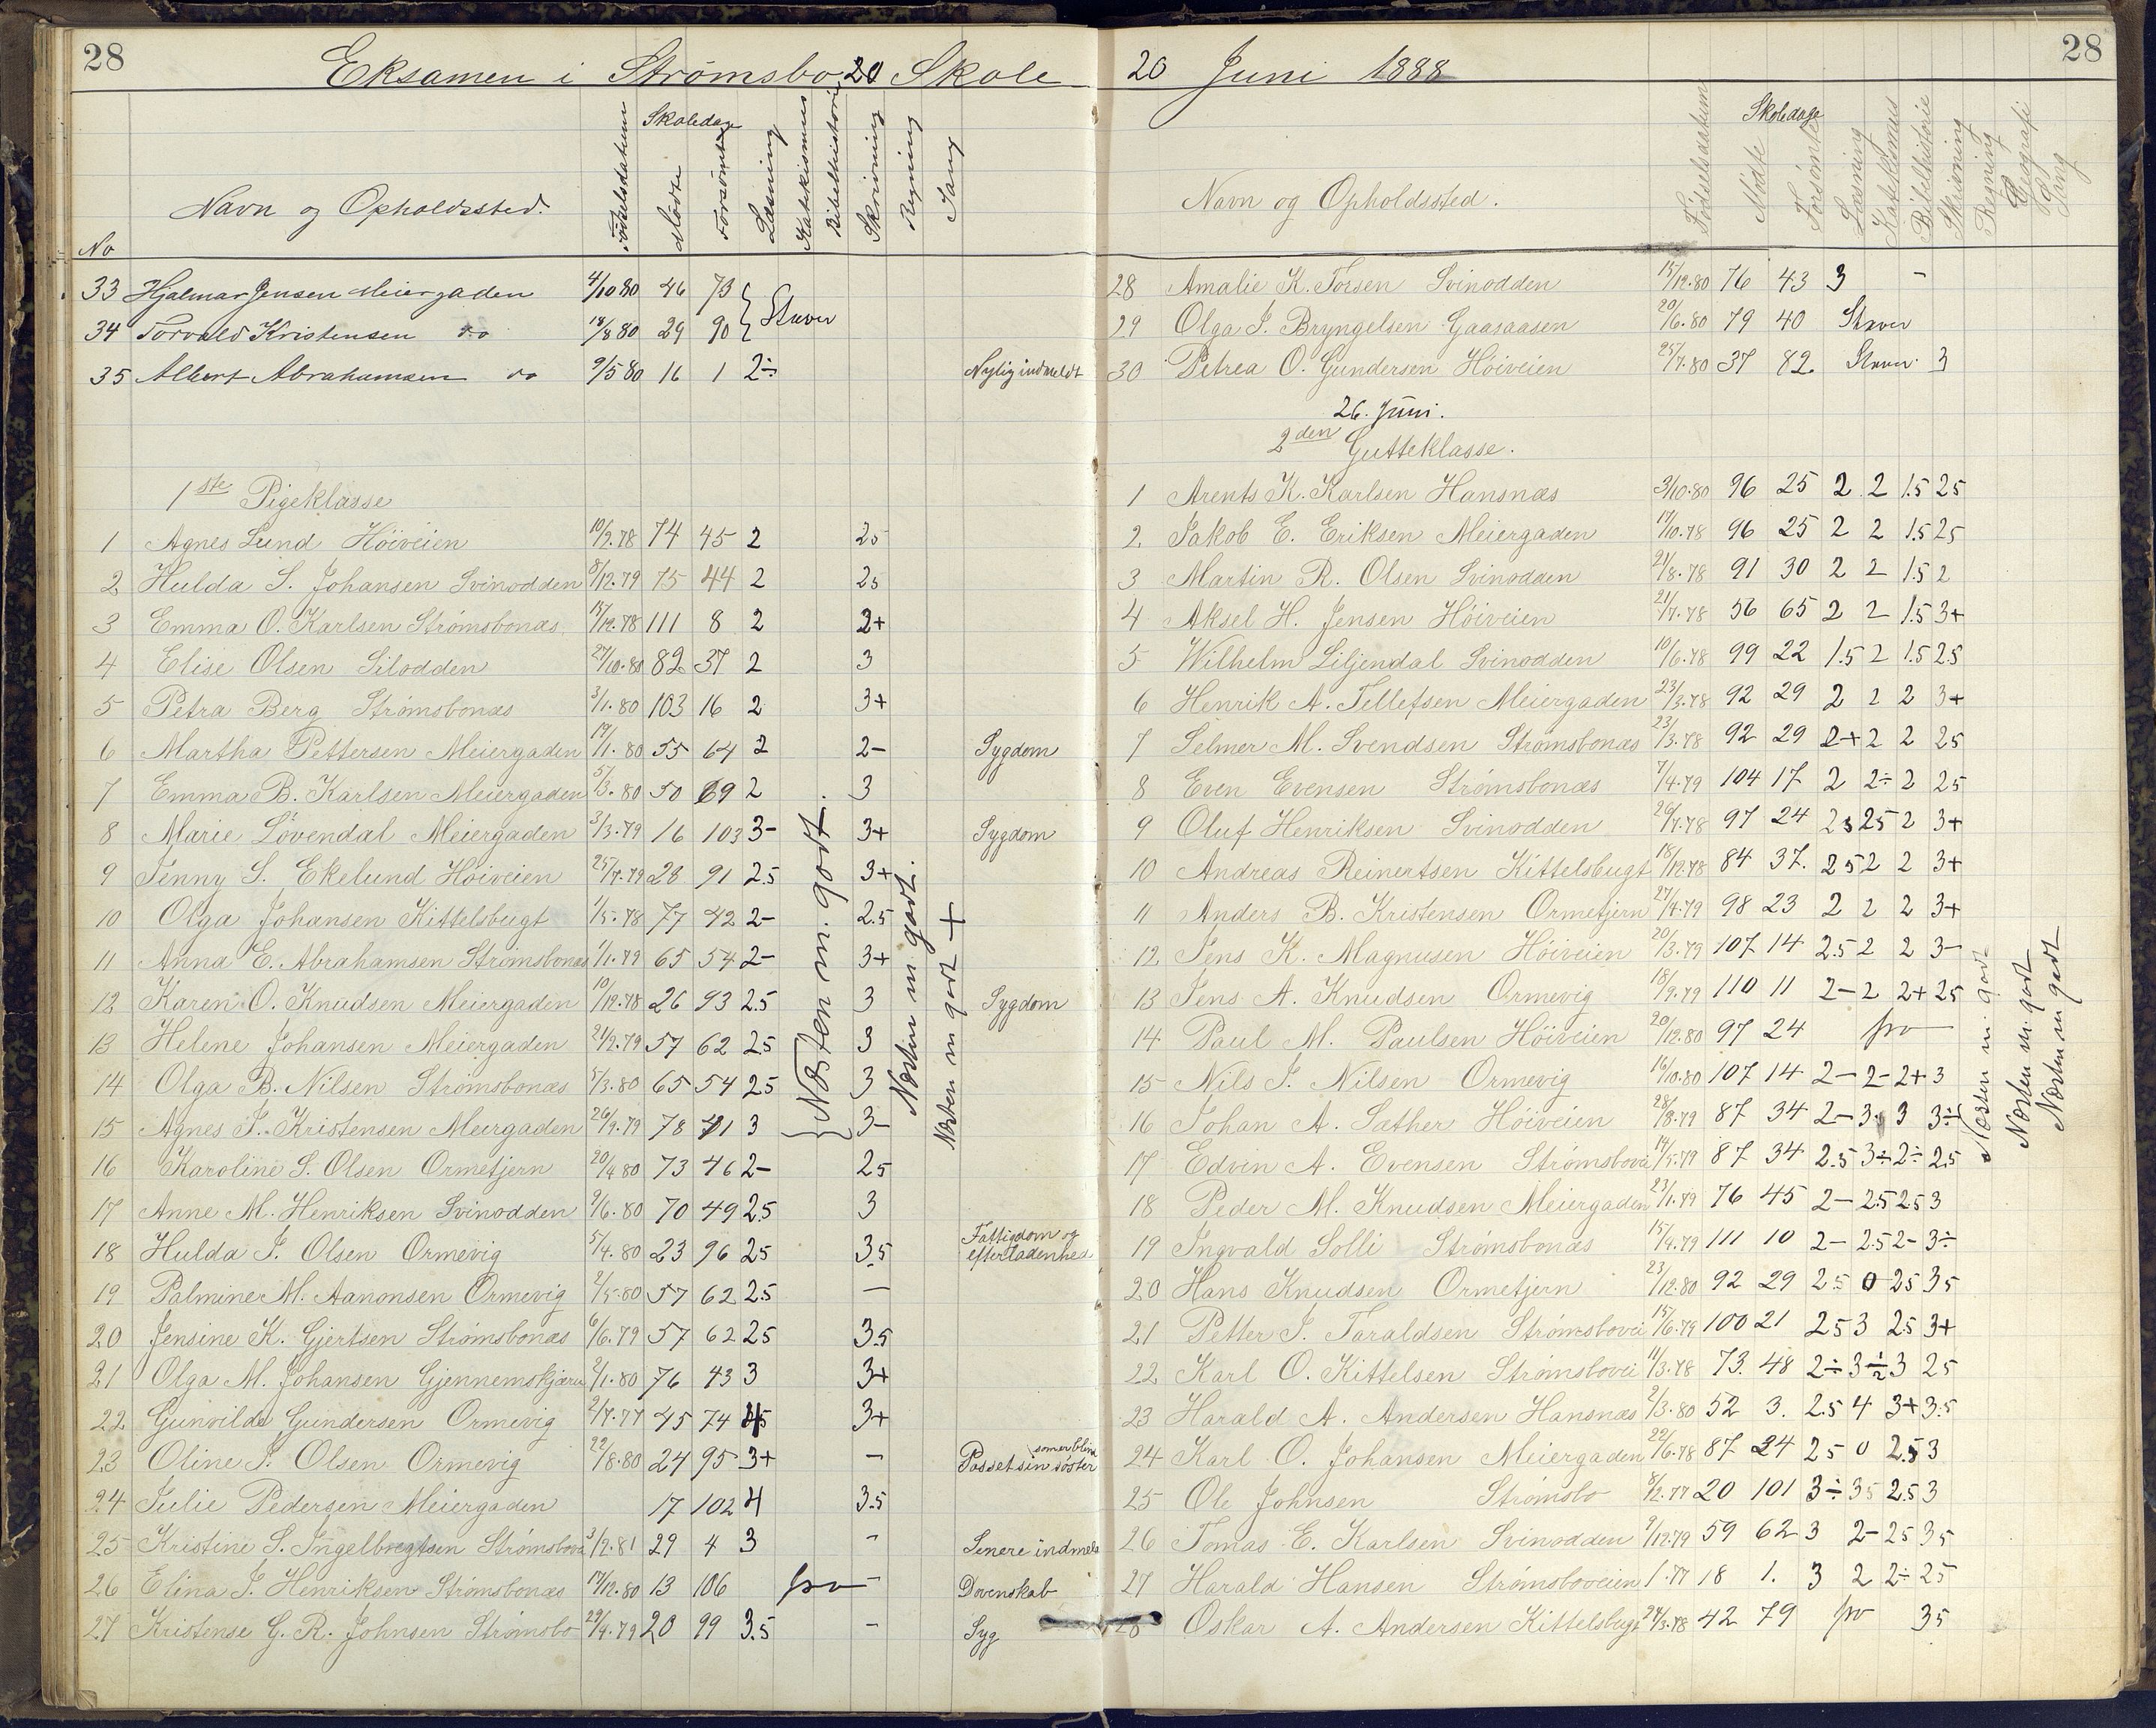 28
Eksamen i Strømsbo 20 Skole
No Navn og Opholdssted. Fødselsdatum Skoledage Mødte Forsømte Læsning Katekismus Bibelhistorie Skrivning Regning Sang
33 Hjalmar Jensen Meiergaden 4/10 80 46 73 } Staver
34 Torvald Kristensen do 18/8 80 29 90
35 Albert Abrahamsen do 9/5 80 16 1 2÷ Nylig indmeldt
1ste Pigeklasse
1 Agnes Lund Höiveien 10/9.78 74 45 2 25
2 Hulda S. Johansen Svinodden 8/12.79 75 44 2 25
3 Emma O. Karlsen Strömsbonæs 15/12.78 111 8 2 2+
4 Elise Olsen Silodden 27/10.80 82 37 2 3
5 Petra Berg Strömsbonæs 3/1.80 103 16 2 3+
6 Martha Pettersen Meiergaden 19/11.80 55 64 2 2- Sygdom
7 Emma B. Karlsen Meiergaden 5/3.80 50 69 2 3
8 Marie Lövendal Meiergaden 3/3.79 16 103 3- 3+ Sygdom
9 Jenny S. Ekelund Höiveien 25/7.79 28 91 2.5 3+
10 Olga Johansen Kittelsbugt 1/5.78 77 42 2- 2.5
11 Anna E. Abrahamsen Strömsbonæs 1/1.79 65 54 2- 3+
12 Karen O. Knudsen Meiergaden 10/12.78 26 93 2.5 3 Sygdom
13 Helene Johansen Meiergaden 21/2.79 57 62 2.5 3
14 Olga B. Nilsen Strömsbonæs 5/3.80 65 54 25 3
15 Agnes J. Kristensen Meiergaden 26/9.79 78 41 3 3-
16 Karoline S. Olsen Ormetjern 20/4 80 73 46 2- 25
17 Anne M. Henriksen Svinodden 9/6.80 70 49 2.5 3
18 Hulda J. Olsen Ormevig 5/4.80 23 96 25 3.5 Fattigdom og efterladenhed
19 Palmine M. Aanonsen Ormevig 2/5.80 57 62 2.5 —
20 Jensine K. Gjertsen Strömsbonæs 6/6.79 57 62 25 3.5
21 Olga M. Johansen Gjennemskjæren 2/1.80 76 43 3 3+
22 Gunvilde Gundersen Ormevig 2/7.77 45 74 45 3+
23 Oline J. Olsen Ormevig 22/8.80 24 95 3+ - Passet sin söster som er blind
24 Julie Pedersen Meiergaden 17 102 4 3.5
25 Kristine S. Ingelbregtsen Strömsbovei 3/12.81 29 4 3 - Senere indmeld
26 Elina J. Henriksen Strömsbonæs 17/12.80 13 106 frv - Dovenskab
27 Kristense G. R. Johnsen Strömsbo 29/4.79 20 99 3.5 - Syg
Næsten m. godt.
Næsten m godt.
Næsten m godt +
20 Juni 1888
28
Navn og Opholdssted. Fødselsdatum Skoledage Mødte Forsømte Læsning Katekismus Bibelhistorie Skrivning Regning Geografi Sang
28 Amalie K. Torsen Svinodden 15/12.80 76 43 3 -
29 Olga J. Bryngelsen Gaasaasen 20/6.80 79 40 Staver
30 Petrea O. Gundersen Höiveien 25/7.80 37 82. Staver 3
26. Juni.
2den Gutteklasse.
1 Arents K. Karlsen Hansnæs 3/10.80 96 25 2 2 1.5 25
2. Jakob E. Eriksen Meiergaden 17/10.78 96 25 2 2 1.5 25
3 Martin R. Olsen Svinodden 21/8.78 91 30 2 2 1.5 2
4 Aksel H. Jensen Höiveien 21/7.78 56 65 2 2 1.5 3+
5 Wilhelm Liljendal Svinodden 10/6.78 99 22 1.5 2 1.5 2.5
6 Henrik A. Tellefsen Meiergaden 23/3.78 92 29 2 2 2 3+
7 Selmer M. Svendsen Strömsbonæs 23/3.78 92 29 2+ 2 2 25
8 Even Evensen Strömsbonæs 7/4.79 104 17 2 2÷ 2 25
9 Oluf Henriksen Svinodden 26/7.78 97 24 25 25 2 3+
10 Andreas Reinertsen Kittelsbugt 18/12.78 84 37. 25 2 2 3+
11 Anders B. Kristensen Ormetjern 27/4.79 98 23 2 2 2 3+
12 Jens K. Magnusen Höiveien 20/3.79 107 14 2.5 2 2 3-
13 Jens A. Knudsen Ormevig 18/9.79 110 11 2- 2 2+ 25
14 Paul M. Paulsen Höiveien 20/12.80 97 24 frv
15 Nils J. Nilsen Ormevig 16/10.80 107 14 2- 2- 2+ 3
16 Johan A. Sather Höiveien 28/8.79 87 34 2- 3 3 3÷
17 Edvin A. Evensen Strömsbovei 14/5.79 87 34 2.5 3÷ 2÷ 2.5
18 Peder M. Knudsen Meiergaden 23/1.79 76 45 2- 2.5 2.5 3
19 Ingvald Solli Strömsbonæs 15/4.79 111 10 2- 2.5 2- 3÷
20 Hans Knudsen Ormetjern 23/12.80 92 29 2.5 0 25 35
21 Petter J. Taraldsen Strömsbovei 15/6.79 100 21 25 3 2.5 3+
22 Karl O. Kittelsen Strömsbovei 11/3.78 73. 48 2÷ 3÷ 3 25
23 Harald A. Andersen Hansnæs 2/3.80 52 3. 2.5 4 3+ 3.5
24 Karl O. Johansen Meiergaden 22/6.78 87 24 25 0 2.5 3
25 Ole Johnsen Strömsbo 8/2.77 20 101 3÷ 35 2.5 3
26 Tomas E. Karlsen Svinodden 9/12.79 59 62 3 2- 25 35
27 Harald Hansen Strömsboveien 1.77 18 1. 3 2 2÷ 25
28 Oskar A. Andersen Kittelsbugt 24/3.78 42 79 frv 35
Næsten m. godt
Næsten m. godt
Næsten m godt